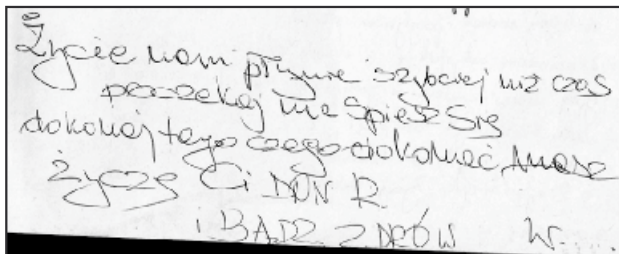 Życie nam płynie szybciej niż czos
poczekaj nie śpiesz się
dokonaj tego czego dokonać masz
życzę Ci
i BĄDŹ ZDRÓW W.....